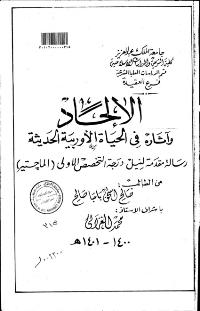 جامعة الملك عبد العزيز
قسم الدراسات العليا الشرعية
فرع العقيدة
الإلحاد
وآثاره في الحياة الأوربية الحديثة
رسالة مقدمة لنيل درجة التخصص الأولى (الماجستير)
من الطالب:
صالح إسحق بامبا صالح
بإشراف الأستاذ:
محمد الغزالي
١٤٠٠ - ١٤٠١ هـ